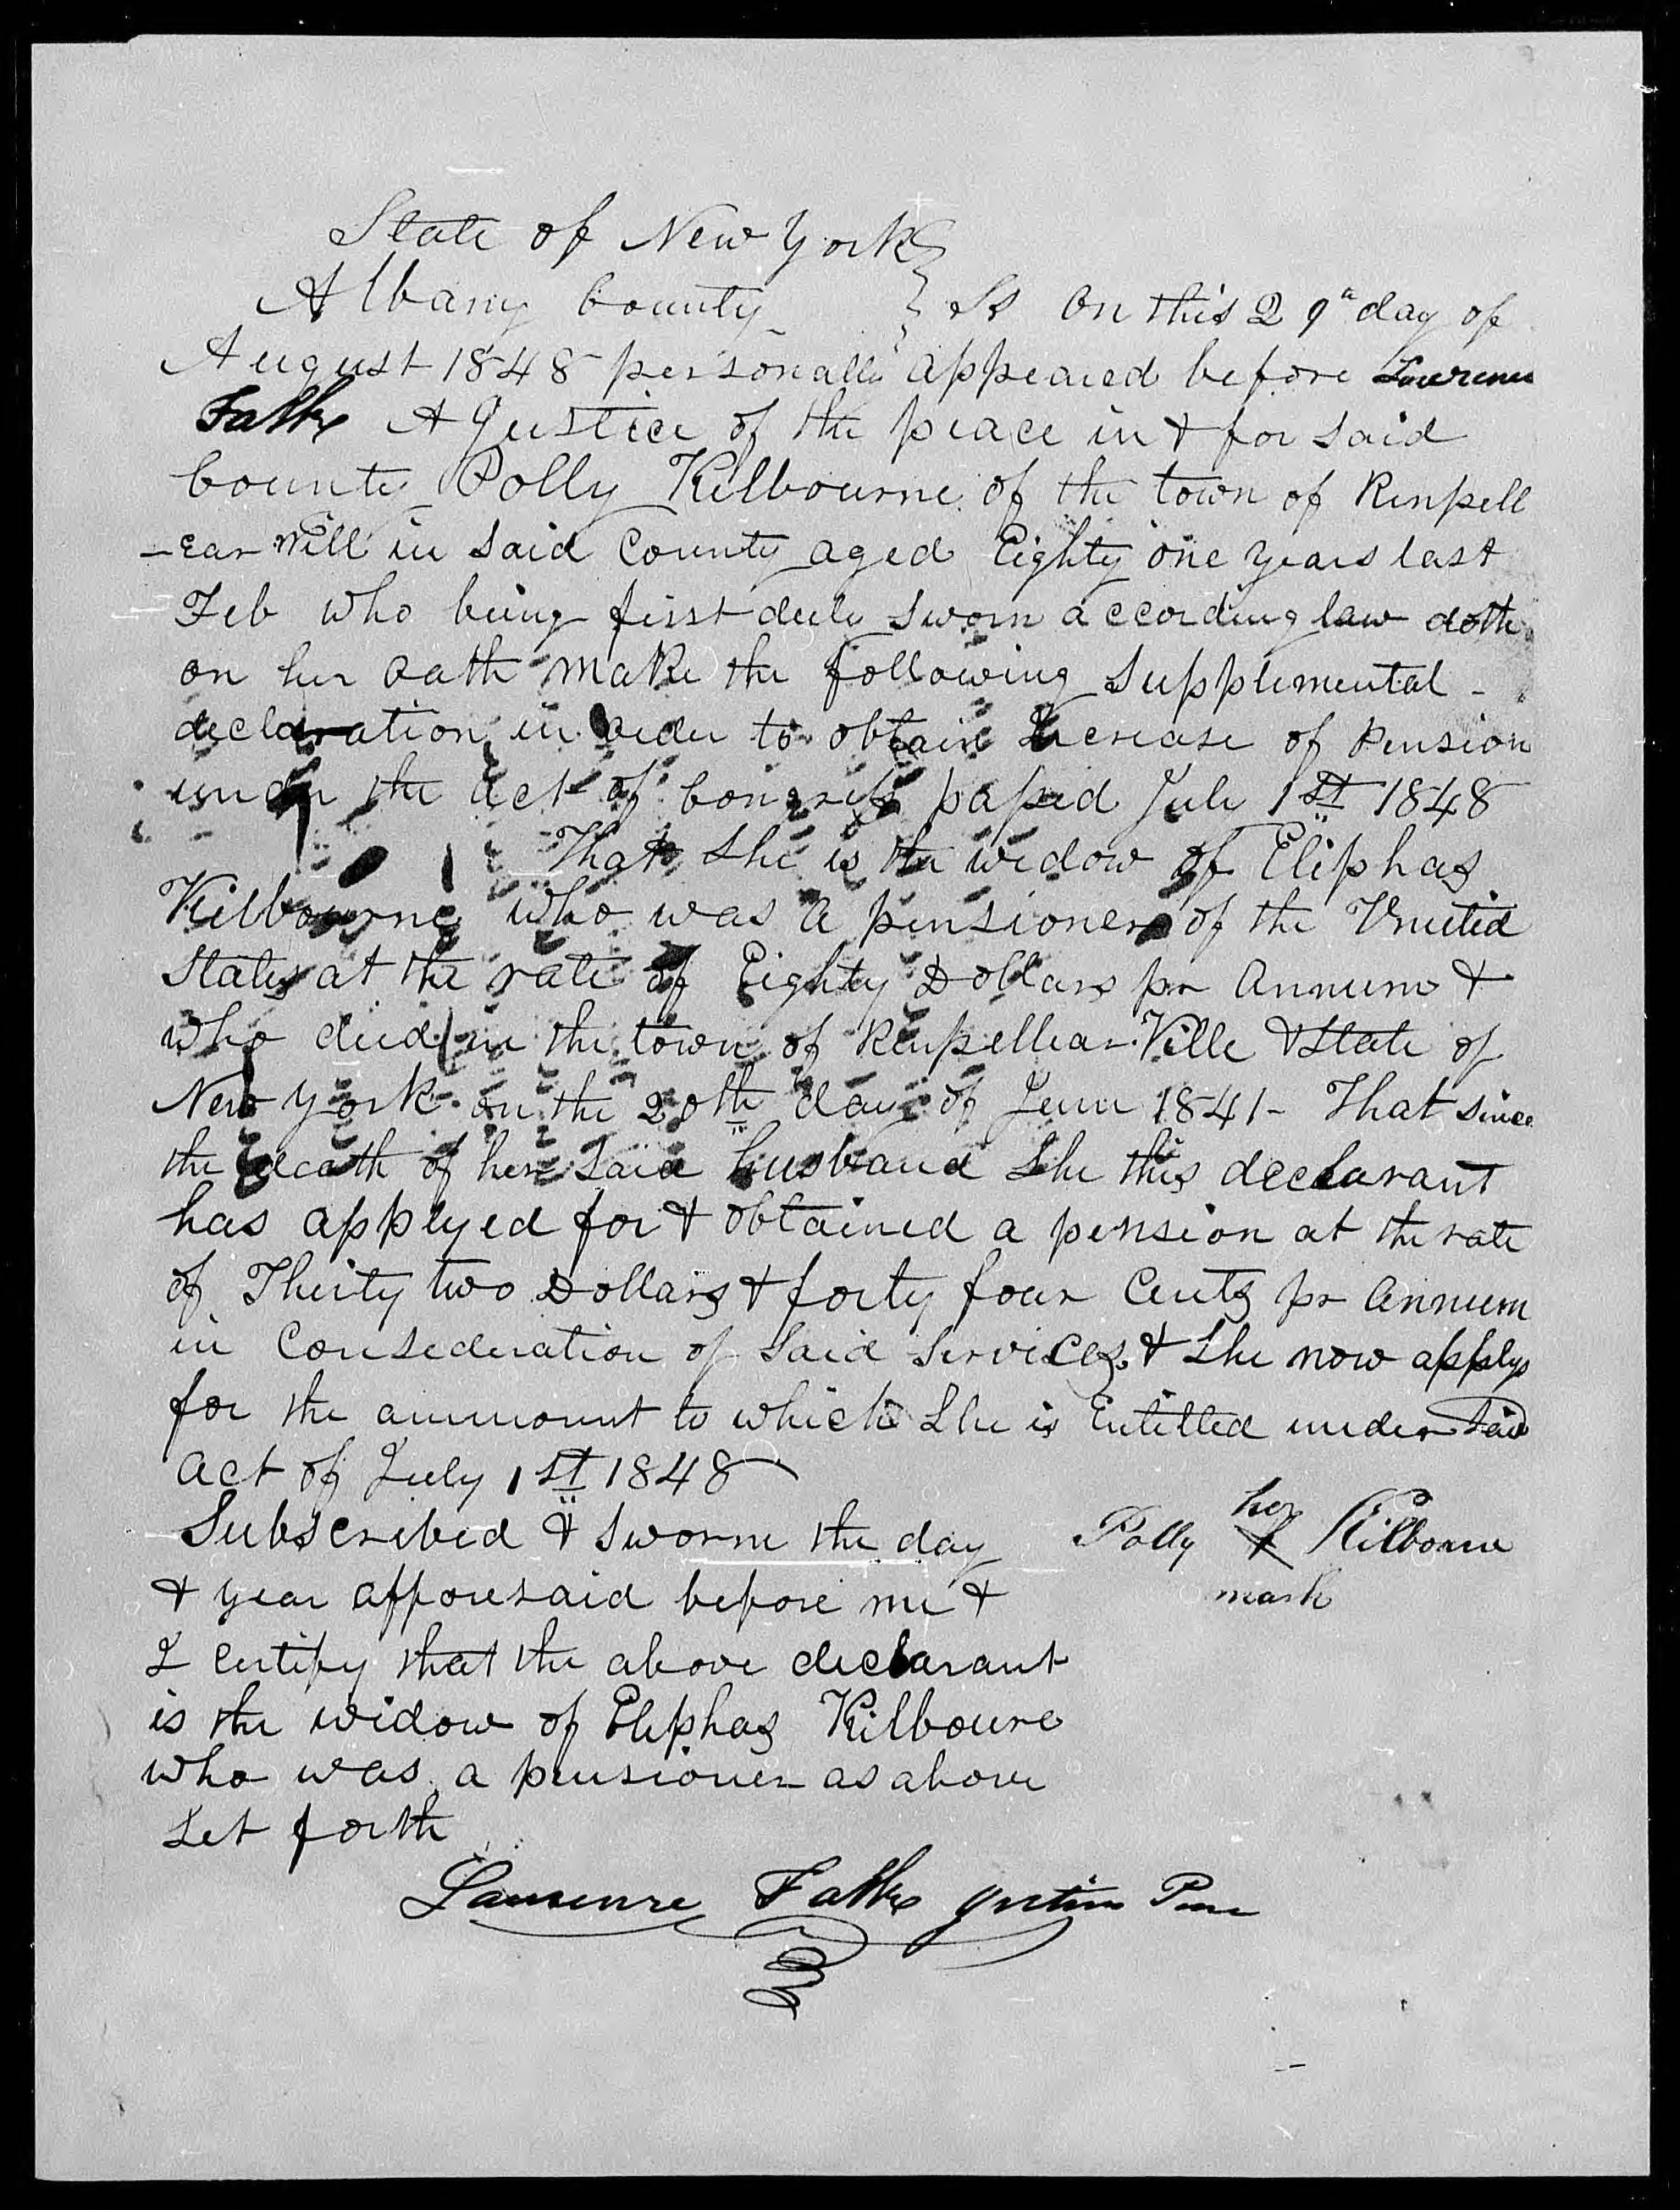 State of New York }
Albany County } Ss On this 29th day of
August 1848 personally appeared before Lawrence
Falke A Justice of the peace in & for said
County Polly Kilbourne of the town of Renssell
-ear Vill in said County aged Eighty one years last
Feb who being first duly sworn according law doth
on her oath make the following supplemental
declaration in order to obtain Increase of Pension
under the act of Congress passed July 1st 1848
That she is the widow of Eliphas
Kilbourne who was a pensioner of the United
States at the rate of Eighty Dollars pr Annum &
who died in the town of Rensselear Ville & State of
New York on the 20th day of June 1841 - That since
the death of her said husband she this declarant
has applyed for & obtained a pension at the rate
of Thirty two Dollars & forty four Cents pr Annum
in Consideration of said services & she now applys
for the ammount to which she is Entitled under said
act of July 1st 1848
Subscribed & sworn the day
& year afforesaid before me &
I certify that the above declarant
is the widow of Eliphas Kilboure
who was a pensioner as above
set forth
Polly her X mark Kilborne
Lawrence Falke Justice Peace